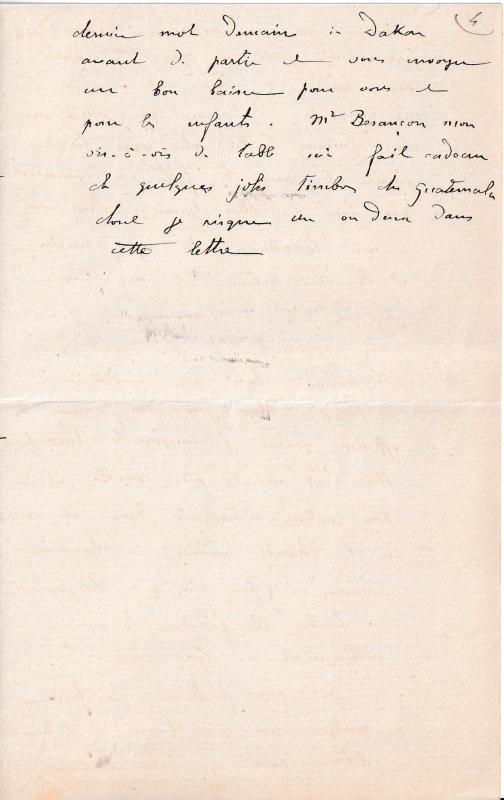 4
dernier mot demain à Dakar
avant de partir et vous envoyer
un bon baiser pour vous et
pour les enfants. Mr Besançon mon
vis-à-vis de table m'a fait cadeau
de quelques jolis timbres du Guatemala
dont je risque un ou deux dans
cette lettre